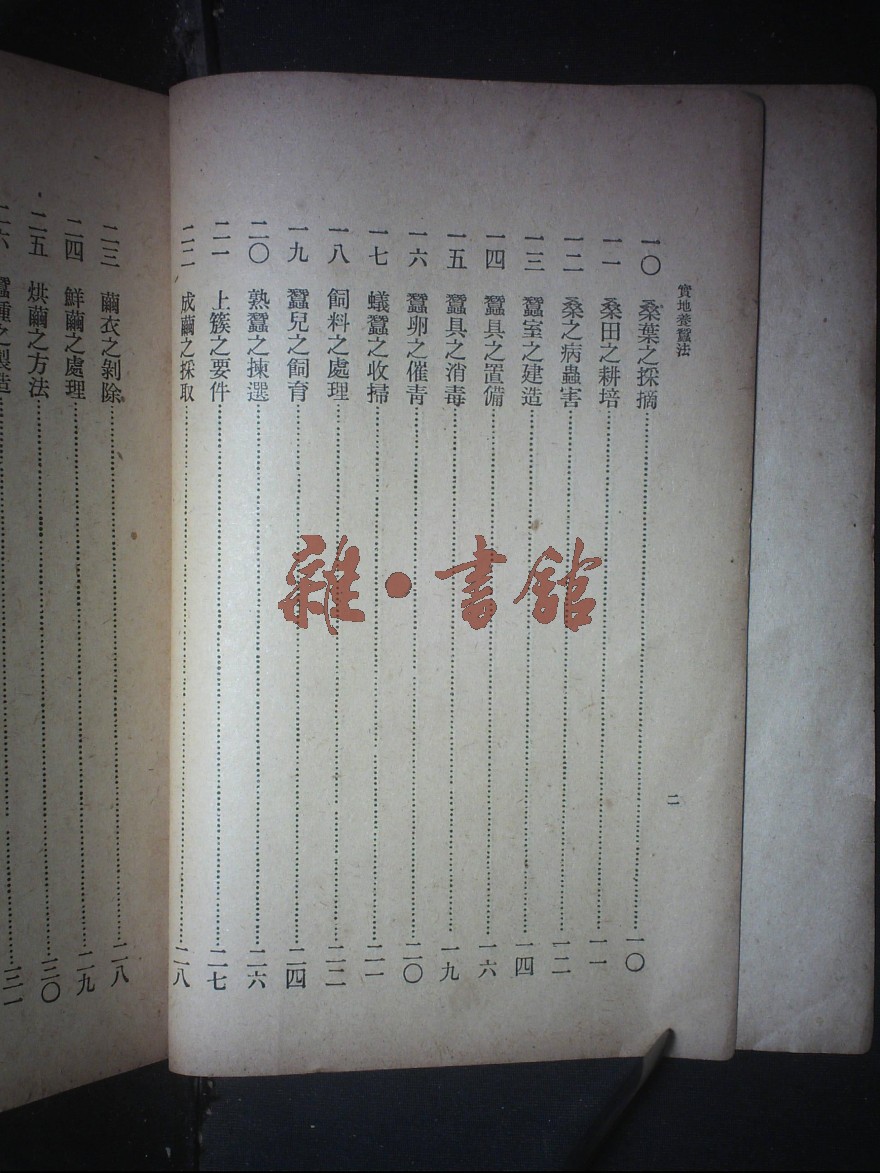 實地養蠶法
二
一〇 桑葉之採摘……一〇
一一 桑田之耕培……一一
一二 桑之病蟲害……一二
一三 蠶室之建造……一四
一四 蠶具之置備……一六
一五 蠶具之消毒……一九
一六 蠶卵之催青……二〇
一七 蟻蠶之收掃……二一
一八 飼料之處理……二二
一九 蠶兒之飼育……二四
二〇 熟蠶之揀選……二六
二一 上簇之要件……二七
二二 成繭之採取……二八
二三 繭衣之剝除……二八
二四 鮮繭之處理……二九
二五 烘繭之方法……三〇
二六 蠶種之製造……三一
雜·書館